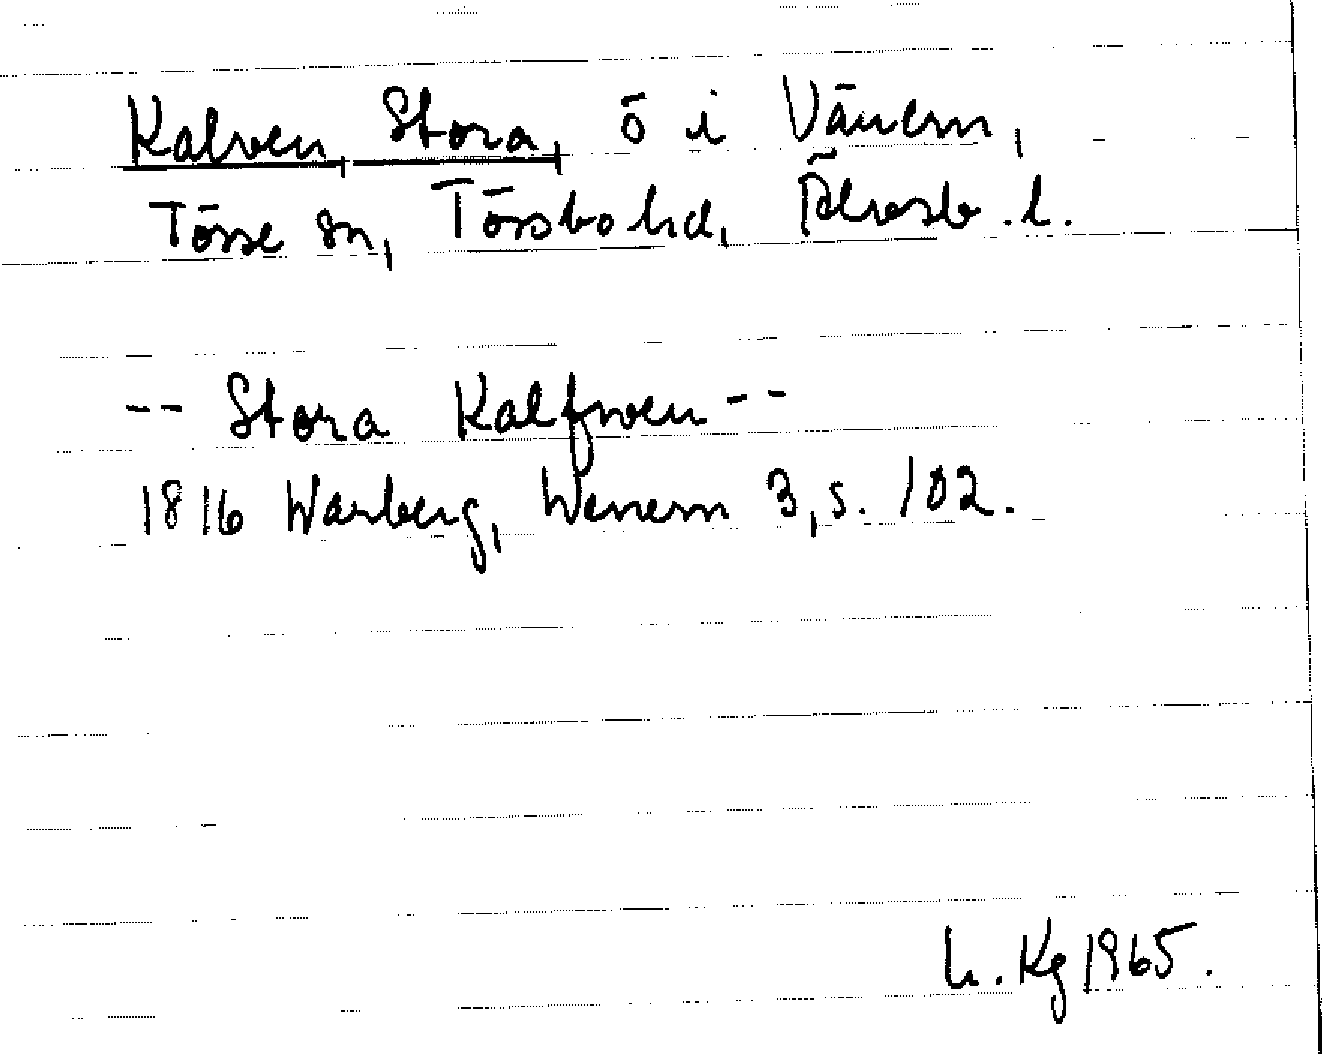 Kalven, Stora, ö i Vänern,
Tösse sn, Tössbo hd, Älvsb. l.
-- Stora Kalfwen --
1816 Warberg, Wenern 3, s. 102.
h. Kg 1965.